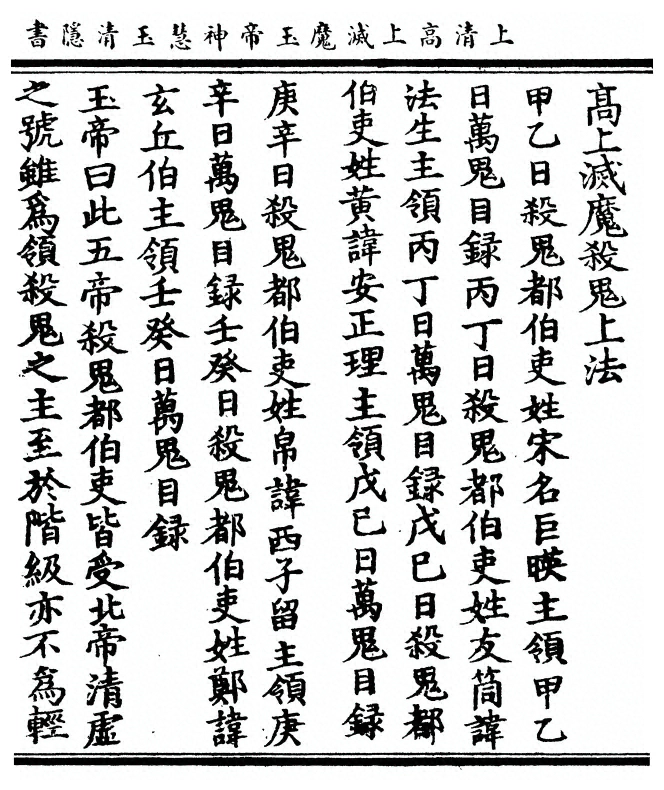 上清高上滅魔玉帝神慧玉清隱書
高上滅魔殺鬼上法
甲乙日殺鬼都伯吏姓宋名巨暎主領甲乙
日萬鬼目録丙丁日殺鬼都伯吏姓友筒諱
法生主領丙丁日萬鬼目録戊巳日殺鬼都
伯吏姓黄諱安正理主領戊巳日萬鬼目録
庚辛日殺鬼都伯吏姓帛諱西子留主領庚
辛日萬鬼目録壬癸日殺鬼都伯吏姓鄭諱
玄丘伯主領壬癸日萬鬼目録
玉帝曰此五帝殺鬼都伯吏皆受北帝清虛
之號雖爲領殺鬼之主至於階級亦不爲輕